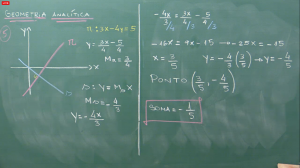 GEOMETRIA ANALÍTICA
5
Y
r
x
s
r: 3x-4y=5
Y = 3x/4 - 5/4
Mr = 3/4
s: Y = Ms X
Ms = -4/3
Y = -4x/3
-4x/3 = 3x/4 - 5/4
-16x = 9x - 15 → -25x = -15
x = 3/5
Y = -4/3 (3/5) → Y = -4/5
PONTO (3/5, -4/5)
SOMA = -1/5